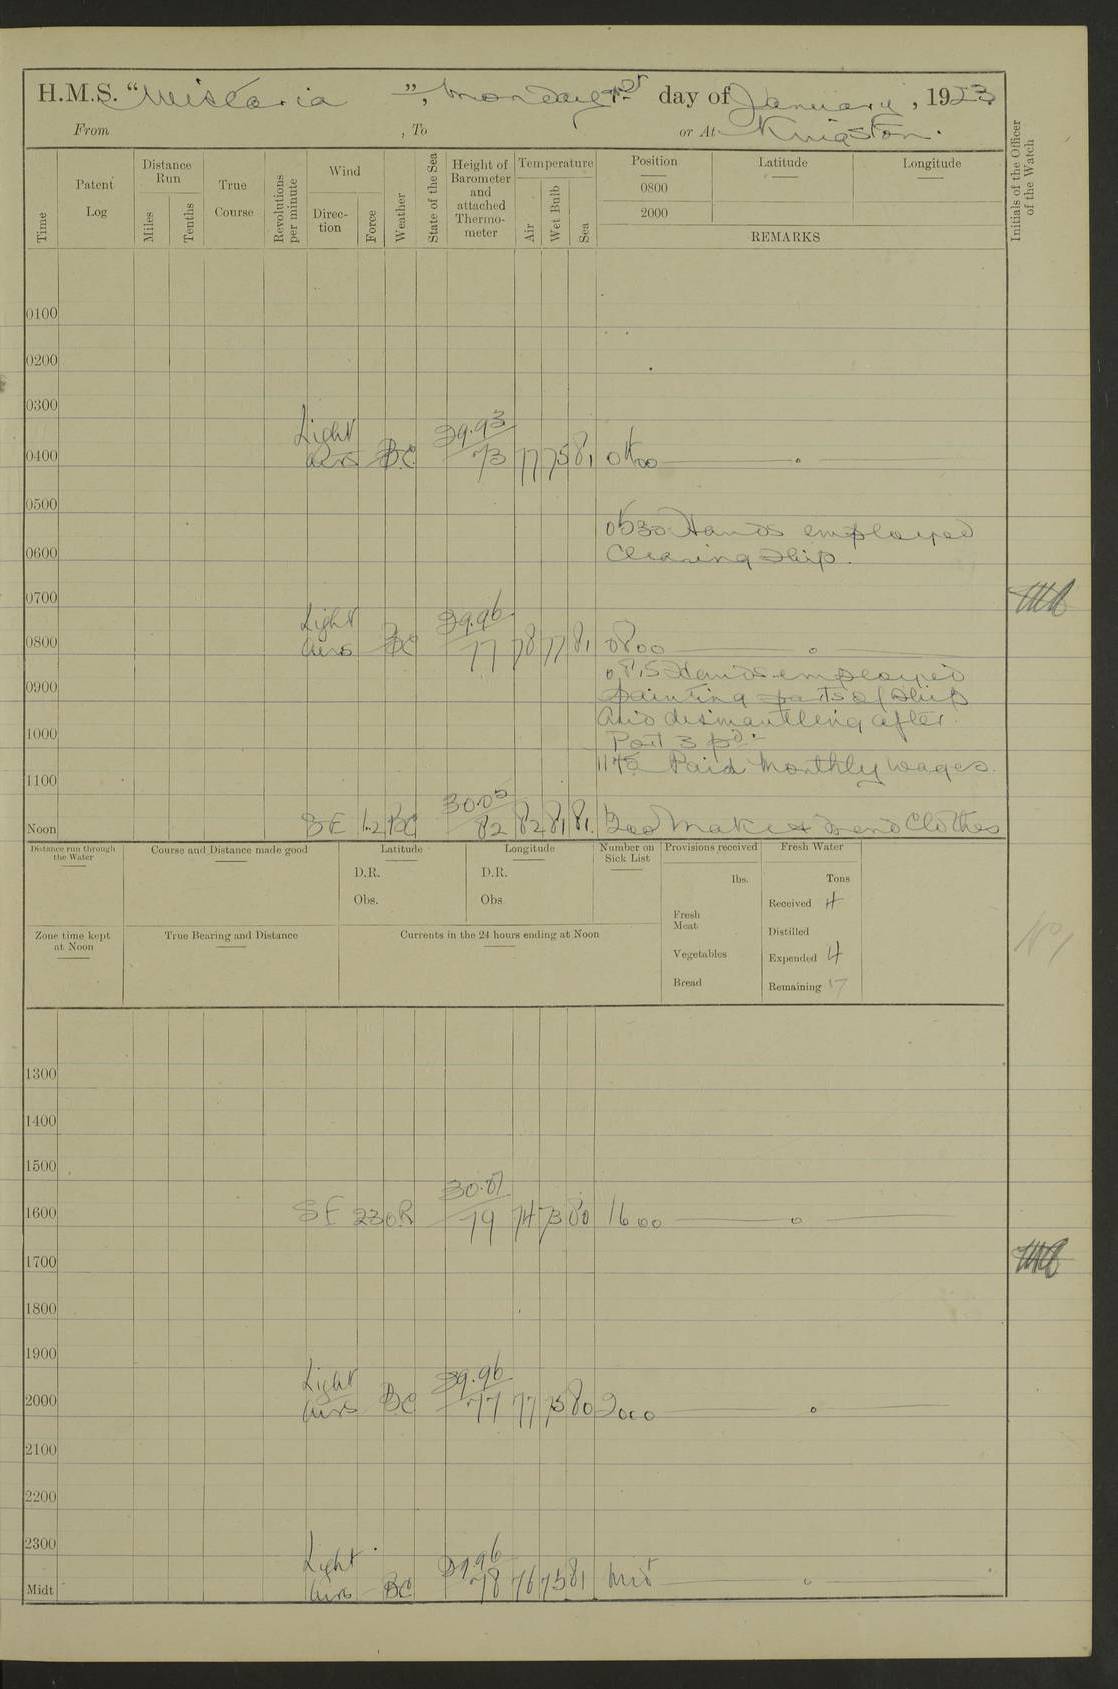 H.M.S. "Wistaria", Monday 1st day of January, 1923
From , To or At Kingston.
Time
Patent Log
Distance Run
Miles
Tenths
True Course
Revolutions per minute
Wind
Direction
Force
Weather
State of the Sea
Height of Barometer and attached Thermometer
Temperature
Air
Wet Bulb
Sea
Position
0800
2000
Latitude
Longitude
REMARKS
Initials of the Officer of the Watch
0100
0200
0300
Light 29.93
0400 airs BC 73 77 75 81 0400
0500
0530 Hands employed
0600 Cleaning Ship.
0700
Light 29.96
0800 airs BC 77 78 77 81 0800
0815 Hands employed
0900 painting parts of Ship
and dismantling after
1000 Port 3 pdr
1145 Paid Monthly Wages.
1100
30.05
Noon SE 1.2 BC 82 82 81 81 Make & Mend Clothes
Distance run through the Water
Course and Distance made good
Latitude
D.R.
Obs.
Longitude
D.R.
Obs.
Number on Sick List
Provisions received
lbs.
Fresh Meat
Vegetables
Bread
Fresh Water
Tons
Received 4
Distilled
Expended 4
Remaining 17
Zone time kept at Noon
True Bearing and Distance
Currents in the 24 hours ending at Noon
1300
1400
1500
30.01
1600 SE 2.3 OR 79 74 73 80 1600
1700
1800
1900
Light 29.96
2000 airs BC 77 77 75 80 2000
2100
2200
2300
Light 29.96
Midt airs BC 78 76 75 81 Mid